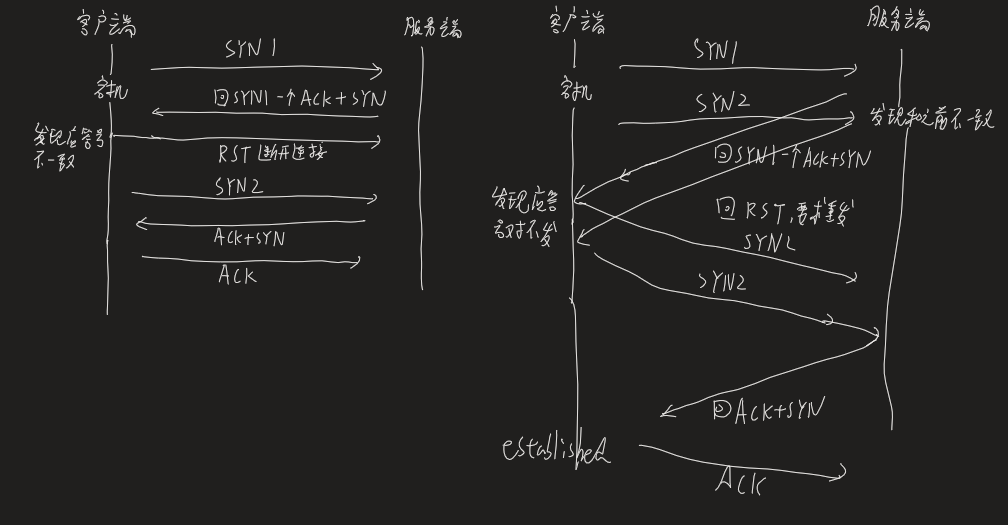 客户端
服务端
SYN 1
宕机
回SYN1一个ACK+SYN
发现应答号
不一致
RST 断开连接
SYN2
ACK+SYN
ACK
客户端
服务端
SYN1
宕机
SYN2
发现和之前不一致
回SYN1一个ACK+SYN
发现应答
回RST,要求重发
SYN2
ACK+SYN
established
ACK